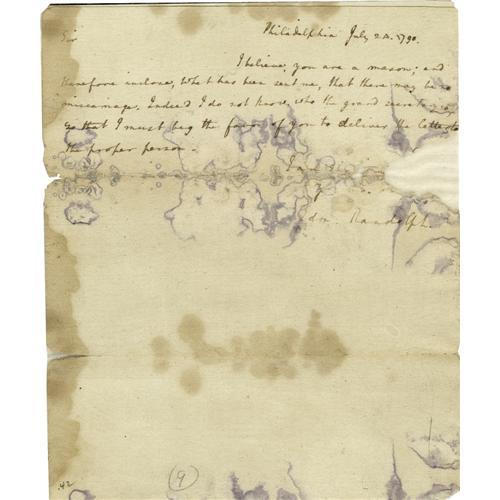 Sir
Philadelphia July 24. 1790.
I believe you are a mason; and
therefore inclose, what has been sent me, that there may be no
miscarriage. Indeed I do not know, who the grand secretary is,
so that I must beg the favor of you to deliver the letter to
the proper person.
I am Sir
Edm. Randolph.
42
9